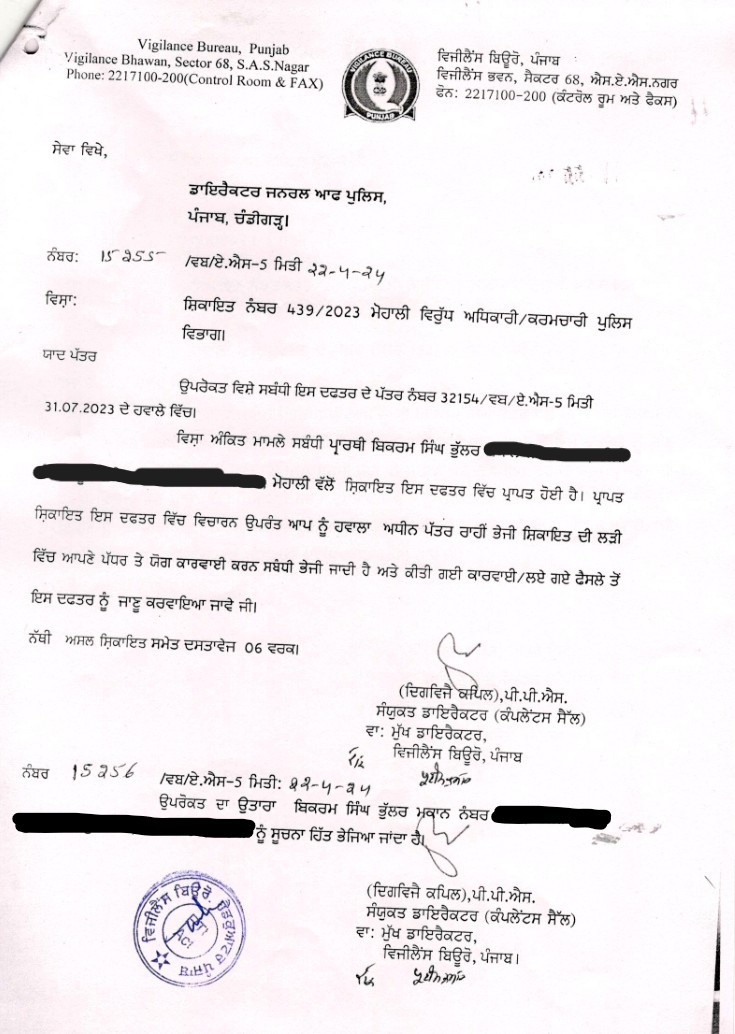 Vigilance Bureau, Punjab
Vigilance Bhawan, Sector 68, S.A.S.Nagar
Phone: 2217100-200(Control Room & FAX)
VIGILANCE BUREAU
PUNJAB
ਵਿਜੀਲੈਂਸ ਬਿਊਰੋ, ਪੰਜਾਬ
ਵਿਜੀਲੈਂਸ ਭਵਨ, ਸੈਕਟਰ 68, ਐਸ.ਏ.ਐਸ.ਨਗਰ
ਫੋਨ: 2217100-200 (ਕੰਟਰੋਲ ਰੂਮ ਅਤੇ ਫੈਕਸ)
ਸੇਵਾ ਵਿਖੇ,
ਡਾਇਰੈਕਟਰ ਜਨਰਲ ਆਫ ਪੁਲਿਸ,
ਪੰਜਾਬ, ਚੰਡੀਗੜ੍ਹ।
ਨੰਬਰ: 15255 /ਵਬ/ਏ.ਐਸ-5 ਮਿਤੀ 22-4-24
ਵਿਸ਼ਾ: ਸ਼ਿਕਾਇਤ ਨੰਬਰ 439/2023 ਮੋਹਾਲੀ ਵਿਰੁੱਧ ਅਧਿਕਾਰੀ/ਕਰਮਚਾਰੀ ਪੁਲਿਸ
ਵਿਭਾਗ।
ਯਾਦ ਪੱਤਰ
ਉਪਰੋਕਤ ਵਿਸ਼ੇ ਸਬੰਧੀ ਇਸ ਦਫਤਰ ਦੇ ਪੱਤਰ ਨੰਬਰ 32154/ਵਬ/ਏ.ਐਸ-5 ਮਿਤੀ
31.07.2023 ਦੇ ਹਵਾਲੇ ਵਿੱਚ।
ਵਿਸ਼ਾ ਅੰਕਿਤ ਮਾਮਲੇ ਸਬੰਧੀ ਪ੍ਰਾਰਥੀ ਬਿਕਰਮ ਸਿੰਘ ਭੁੱਲਰ
ਮੋਹਾਲੀ ਵੱਲੋਂ ਸ਼ਿਕਾਇਤ ਇਸ ਦਫਤਰ ਵਿੱਚ ਪ੍ਰਾਪਤ ਹੋਈ ਹੈ। ਪ੍ਰਾਪਤ
ਸ਼ਿਕਾਇਤ ਇਸ ਦਫਤਰ ਵਿੱਚ ਵਿਚਾਰਨ ਉਪਰੰਤ ਆਪ ਨੂੰ ਹਵਾਲਾ ਅਧੀਨ ਪੱਤਰ ਰਾਹੀਂ ਭੇਜੀ ਸ਼ਿਕਾਇਤ ਦੀ ਲੜੀ
ਵਿੱਚ ਆਪਣੇ ਪੱਧਰ ਤੇ ਯੋਗ ਕਾਰਵਾਈ ਕਰਨ ਸਬੰਧੀ ਭੇਜੀ ਜਾਦੀ ਹੈ ਅਤੇ ਕੀਤੀ ਗਈ ਕਾਰਵਾਈ/ਲਏ ਗਏ ਫੈਸਲੇ ਤੋਂ
ਇਸ ਦਫਤਰ ਨੂੰ ਜਾਣੂ ਕਰਵਾਇਆ ਜਾਵੇ ਜੀ।
ਨੱਥੀ ਅਸਲ ਸ਼ਿਕਾਇਤ ਸਮੇਤ ਦਸਤਾਵੇਜ 06 ਵਰਕ।
(ਦਿਗਵਿਜੈ ਕਪਿਲ),ਪੀ.ਪੀ.ਐਸ.
ਸੰਯੁਕਤ ਡਾਇਰੈਕਟਰ (ਕੰਪਲੇਂਟਸ ਸੈੱਲ)
ਵਾ: ਮੁੱਖ ਡਾਇਰੈਕਟਰ,
ਵਿਜੀਲੈਂਸ ਬਿਊਰੋ, ਪੰਜਾਬ
ਨੰਬਰ 15256 /ਵਬ/ਏ.ਐਸ-5 ਮਿਤੀ: 22-4-24
ਉਪਰੋਕਤ ਦਾ ਉਤਾਰਾ ਬਿਕਰਮ ਸਿੰਘ ਭੁੱਲਰ ਮਕਾਨ ਨੰਬਰ
ਨੂੰ ਸੂਚਨਾ ਹਿੱਤ ਭੇਜਿਆ ਜਾਂਦਾ ਹੈ।
(ਦਿਗਵਿਜੈ ਕਪਿਲ),ਪੀ.ਪੀ.ਐਸ.
ਸੰਯੁਕਤ ਡਾਇਰੈਕਟਰ (ਕੰਪਲੇਂਟਸ ਸੈੱਲ)
ਵਾ: ਮੁੱਖ ਡਾਇਰੈਕਟਰ,
ਵਿਜੀਲੈਂਸ ਬਿਊਰੋ, ਪੰਜਾਬ।
ਵਿਜੀਲੈਂਸ ਬਿਊਰੋ ਹੈਡਕੁਆਟਰ ਪੰਜਾਬ